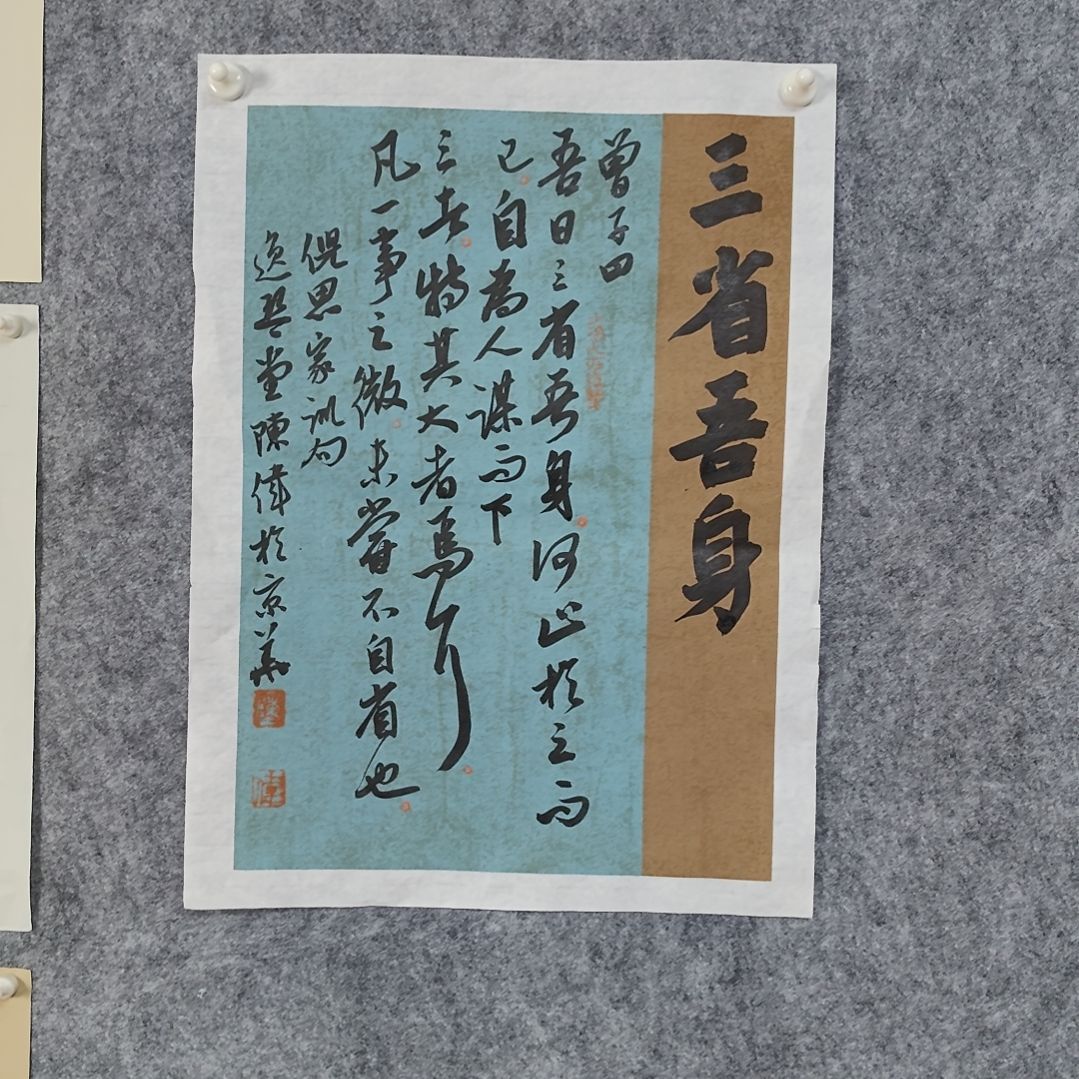 三省吾身
曾子曰
吾日三省吾身何止於三而
已自為人謀而下
三者特其大者焉耳
凡一事之微未嘗不自省也
倪思家訓句
逸琴堂陳偉於京華